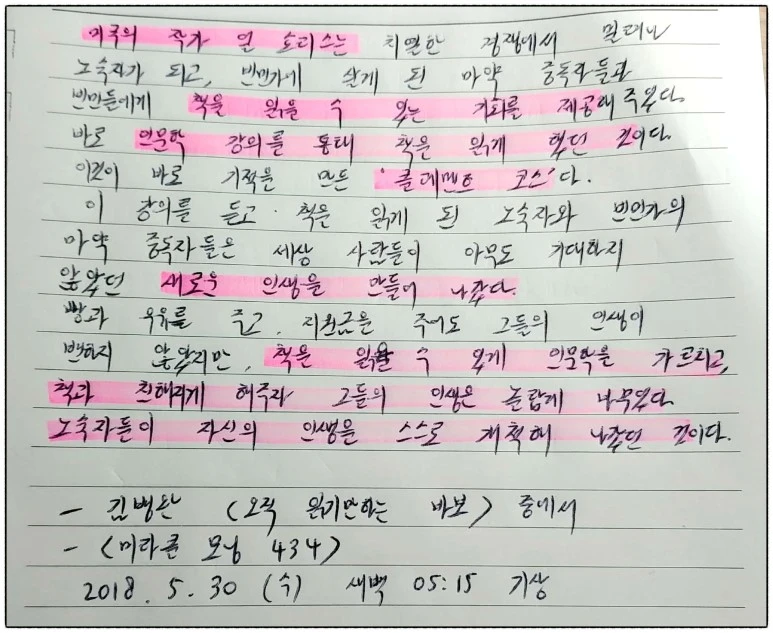 미국의 작가 얼 쇼리스는 치열한 경쟁에서 밀려나
노숙자가 되고, 빈민가에 살게 된 마약 중독자들과
빈민들에게 책을 읽을 수 있는 기회를 제공해 주었다.
바로 인문학 강의를 통해 책을 읽게 했던 것이다.
이것이 바로 기적을 만든 '클레멘트 코스'다.
이 강의를 듣고 책을 읽게 된 노숙자와 빈민가의
마약 중독자들은 세상 사람들이 아무도 기대하지
않았던 새로운 인생을 만들어 나갔다.
빵과 우유를 주고, 지원금을 주어도 그들의 인생이
변하지 않았지만, 책을 읽을 수 있게 인문학을 가르치고,
책과 친해지게 해주자 그들의 인생은 놀랍게
노숙자들이 자신의 인생을 스스로 개척해 나갔던 것이다.
- 김병완 (오직 읽기만하는 바보) 중에서
- <미라클 모닝 434>
2018. 5. 30 (수) 새벽 05:15 기상